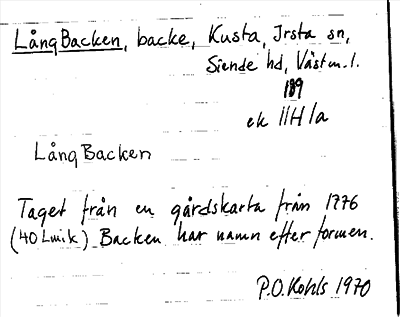 LångBacken, backe, Kusta, Irsta sn,
Siende hd, Västm. l.
189
ek 11H1a
LångBacken
Taget från en gårdskarta från 1776
(40 Lmik) Backen har namn efter formen.
P.O. Kohls 1970